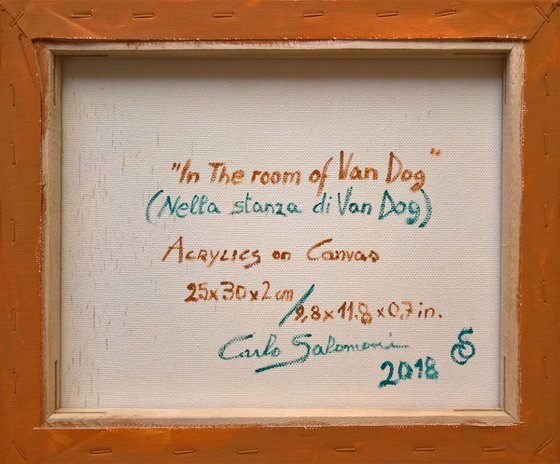 "In The room of Van Dog"
(Nella stanza di Van Dog)
Acrylics on Canvas
25x30x2cm
/9,8x11.8x0,7 in.
Carlo Salomoni
2018